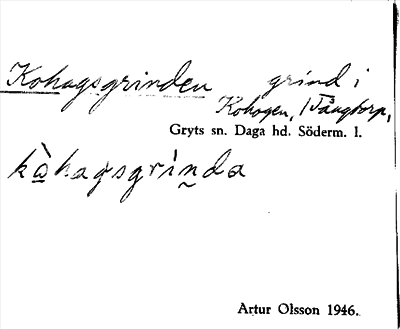 Kohagsgrinden grind i
Kohagen, Vängtorp,
Gryts sn. Daga hd. Söderm. l.
kò̱hagsgrìn̰da
Artur Olsson 1946.